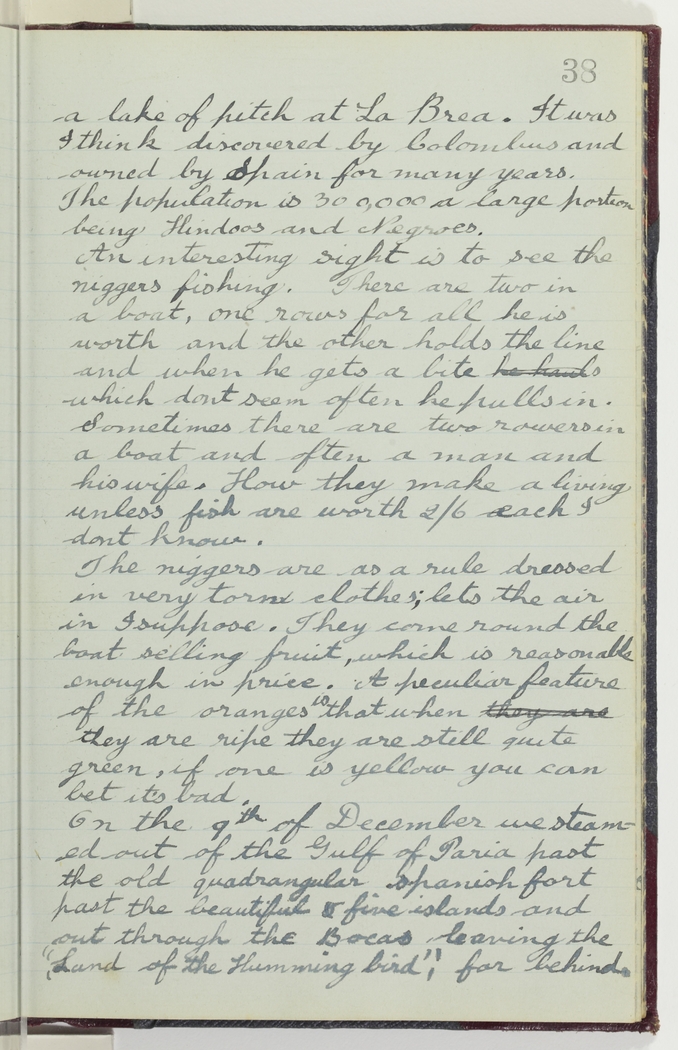 38
a lake of pitch at La Brea. It was
I think discovered by Colombus and
owned by Spain for many years.
The population is 300,000 a large portion
being Hindoos and Negroes.
An interesting sight is to see the
niggers fishing. There are two in
a boat, one rows for all he is
worth and the other holds the line
and when he gets a bite he hauls
which dont seem often he pulls in.
Sometimes there are two rowers in
a boat and often a man and
his wife. How they make a living
unless fish are worth 2/6 each I
dont know.
The niggers are as a rule dressed
in very torn clothes; lets the air
in I suppose. They come round the
boat selling fruit, which is reasonable
enough in price. A peculiar feature
of the oranges is that when they are
they are ripe they are still quite
green, if one is yellow you can
bet its bad.
On the 9th of December we steam-
ed out of the Gulf of Paria past
the old quadrangular spanish fort
past the beautiful five islands and
out through the Bocas leaving the
"Land of the Humming bird", far behind.